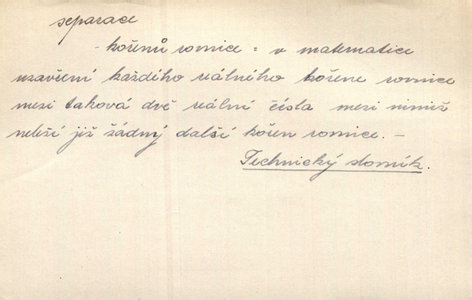 separace
- kořenů rovnice = v matematice
uzavření každého reálného kořene rovnice
mezi taková dvě reální čísla mezi nimiž
neleží již žádný další kořen rovnice. -
Technický slovník.